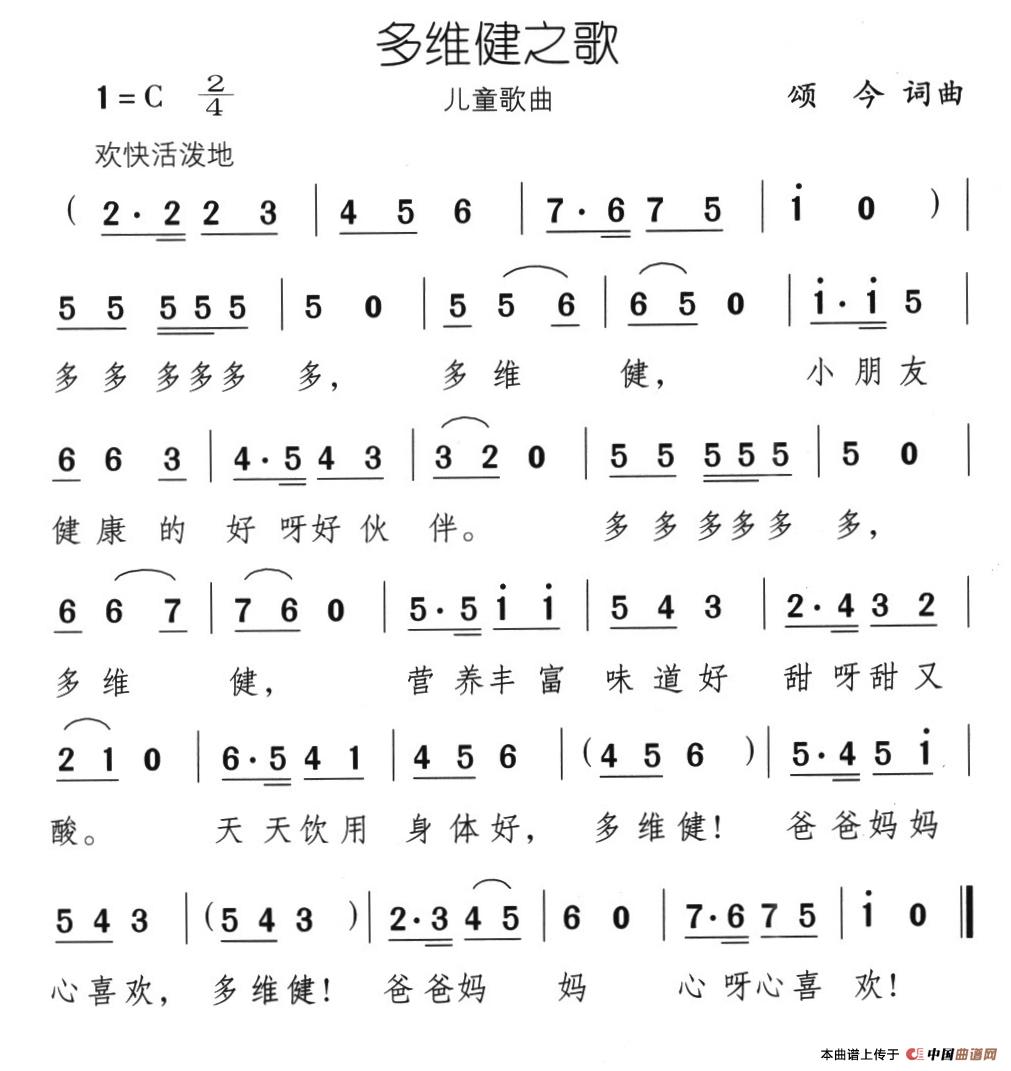 多维健之歌
1=C 2/4 儿童歌曲 颂 今 词曲
欢快活泼地
( 2·2 2 3 | 4 5 6 | 7·6 7 5 | i 0 ) |
5 5 5 5 5 | 5 0 | 5 5 6 | 6 5 0 | i·i 5 |
多 多 多多多 多, 多 维 健, 小 朋 友
6 6 3 | 4·5 4 3 | 3 2 0 | 5 5 5 5 5 | 5 0 |
健 康 的 好 呀好 伙 伴。 多 多 多多多 多,
6 6 7 | 7 6 0 | 5·5 i i | 5 4 3 | 2·4 3 2 |
多 维 健, 营 养丰 富 味 道 好 甜 呀甜 又
2 1 0 | 6·5 4 1 | 4 5 6 | ( 4 5 6 ) | 5·4 5 i |
酸。 天 天饮 用 身 体 好, 多 维 健! 爸 爸妈 妈
5 4 3 | ( 5 4 3 ) | 2·3 4 5 | 6 0 | 7·6 7 5 | i 0 ‖
心 喜 欢, 多 维 健! 爸 爸妈 妈 心 呀心 喜 欢!
本曲谱上传于 中国曲谱网